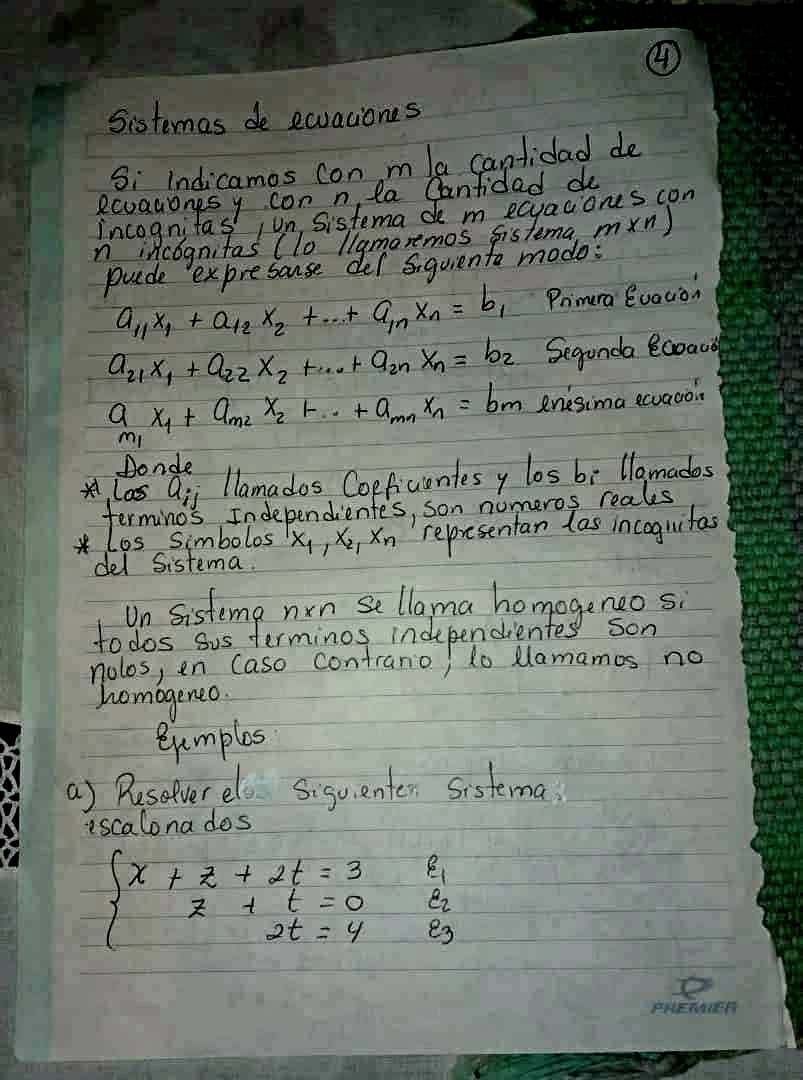 4
Sistemas de ecuaciones
Si indicamos con m la cantidad de
ecuaciones y con n, la cantidad de
incognitas, un sistema de m ecuaciones con
n incógnitas (lo llamaremos sistema m x n)
puede expresarse del siguiente modo:
a₁₁x₁ + a₁₂ x₂ + ...+ a₁ₙ xₙ = b₁ Primera Euación
a₂₁x₁ + a₂₂ x₂ +...+ a₂ₙ xₙ = b₂ Segunda Ecuació
aₘ₁ x₁ + aₘ₂ x₂ + .. + aₘₙ xₙ = bm enésima ecuación
Donde
* Los aᵢⱼ llamados Coeficientes y los bᵢ llamados
terminos Independientes, son numeros reales
* Los Simbolos x₁, x₂, xₙ representan las incognitas
del Sistema.
Un Sistema nxn se llama homogeneo si
todos sus terminos independientes son
nulos, en caso contrario, lo llamamos no
homogeneo.
Ejemplos
a) Resolver el Siguiente Sistema
escalonados
x + z + 2t = 3 E₁
z + t = 0 E₂
2t = 4 E₃
PREMIER